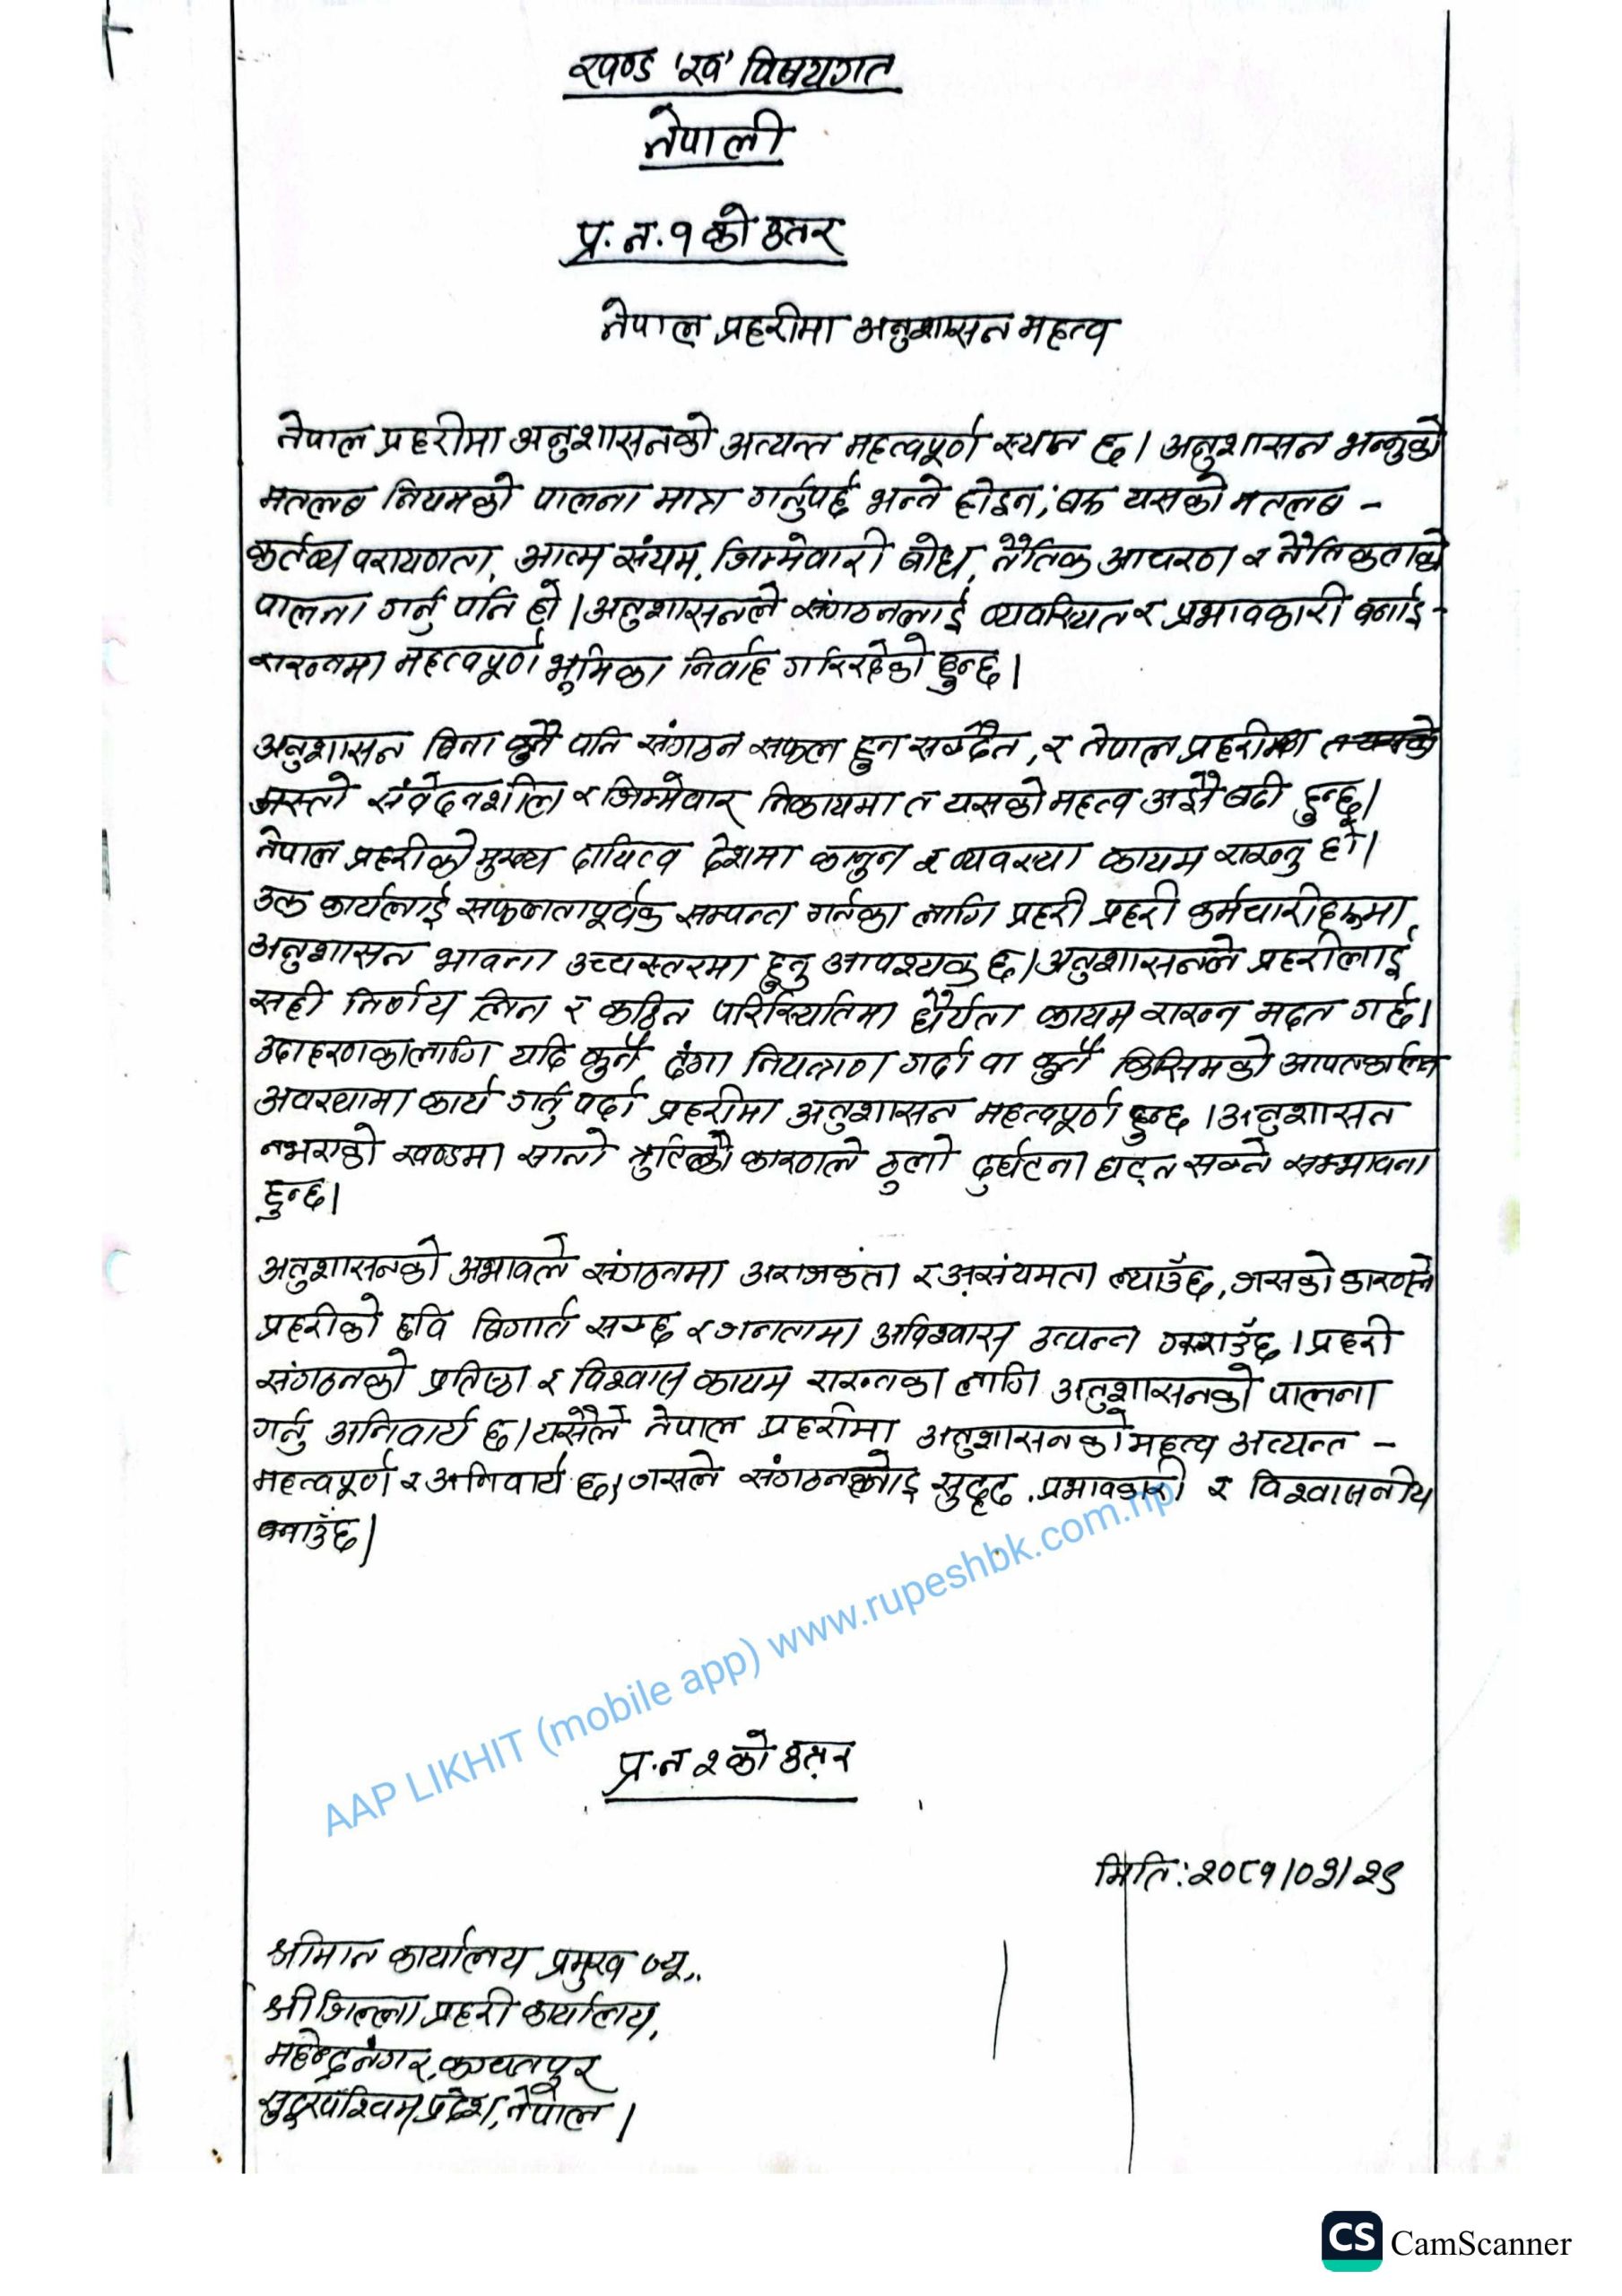 खण्ड 'ख' विषयगत
नेपाली
प्र. न. १ को उतर
नेपाल प्रहरीमा अनुशासन महत्व
नेपाल प्रहरीमा अनुशासनको अत्यन्त महत्वपूर्ण स्थान छ। अनुशासन भन्नुको
मतलब नियमको पालना मात्र गर्नुपर्छ भन्ने होइन, बरु यसको मतलब -
कर्तव्य परायणता, आत्म संयम, जिम्मेवारी बोध, नैतिक आचरण र नैतिकताको
पालना गर्नु पनि हो। अनुशासनले संगठनलाई व्यवस्थित र प्रभावकारी बनाई-
राख्नमा महत्वपूर्ण भूमिका निर्वाह गरिरहेको हुन्छ।
अनुशासन बिना कुनै पनि संगठन सफल हुन सक्दैन, र नेपाल प्रहरी
जस्तो संवेदनशील र जिम्मेवार निकायमा त यसको महत्व अझै बढी हुन्छ।
नेपाल प्रहरीको मुख्य दायित्व देशमा कानुन र व्यवस्था कायम राख्नु हो।
उक्त कार्यलाई सफलतापूर्वक सम्पन्न गर्नका लागि प्रहरी प्रहरी कर्मचारीहरूमा
अनुशासन भावना उच्चस्तरमा हुनु आवश्यक छ। अनुशासनले प्रहरीलाई
सही निर्णय लिन र कठिन परिस्थितिमा धैर्यता कायम राख्न मदत गर्छ।
उदाहरणकालागि यदि कुनै दंगा नियन्त्रण गर्दा वा कुनै किसिमको आपतकालिन
अवस्थामा कार्य गर्नु पर्दा प्रहरीमा अनुशासन महत्वपूर्ण हुन्छ। अनुशासन
नभएको खण्डमा सानो त्रुटिको कारणले ठुलो दुर्घटना घट्न सक्ने सम्भावना
हुन्छ।
अनुशासनको अभावले संगठनमा अराजकता र असंयमता ल्याउँछ, जसको कारणले
प्रहरीको छवि बिगार्न सक्छ र जनतामा अविश्वास उत्पन्न गराउँछ। प्रहरी
संगठनको प्रतिष्ठा र विश्वास कायम राख्नका लागि अनुशासनको पालना
गर्नु अनिवार्य छ। यसैले नेपाल प्रहरीमा अनुशासनको महत्व अत्यन्त -
महत्वपूर्ण र अनिवार्य छ। जसले संगठनलाई सुदृढ, प्रभावकारी र विश्वासनीय
बनाउँछ।
AAP LIKHIT (mobile app) www.rupeshbk.com.np
प्र. न २ को उतर
मिति: २०८१/०३/२९
श्रीमान कार्यालय प्रमुख ज्यू,
श्री जिल्ला प्रहरी कार्यालय,
महेन्द्रनगर, कञ्चनपुर
सुदूरपश्चिम प्रदेश, नेपाल।
CS CamScanner